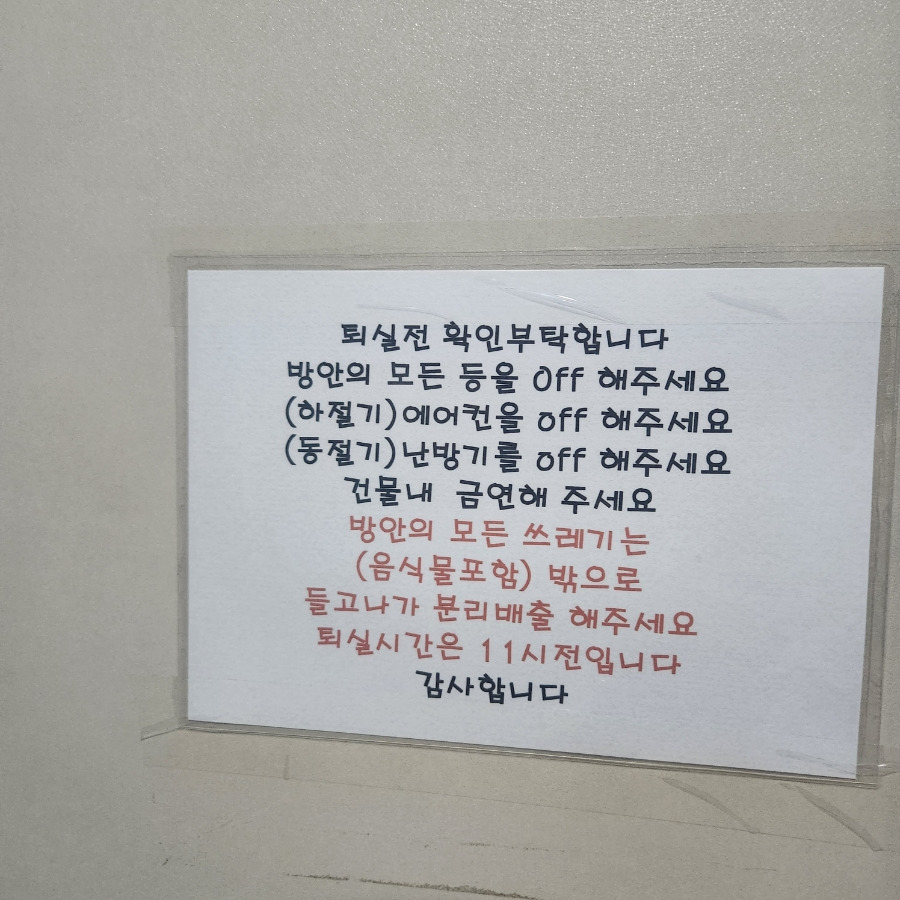 퇴실전 확인부탁합니다
방안의 모든 등을 Off 해주세요
(하절기)에어컨을 off 해주세요
(동절기)난방기를 off 해주세요
건물내 금연해 주세요
방안의 모든 쓰레기는
(음식물포함) 밖으로
들고나가 분리배출 해주세요
퇴실시간은 11시전입니다
감사합니다